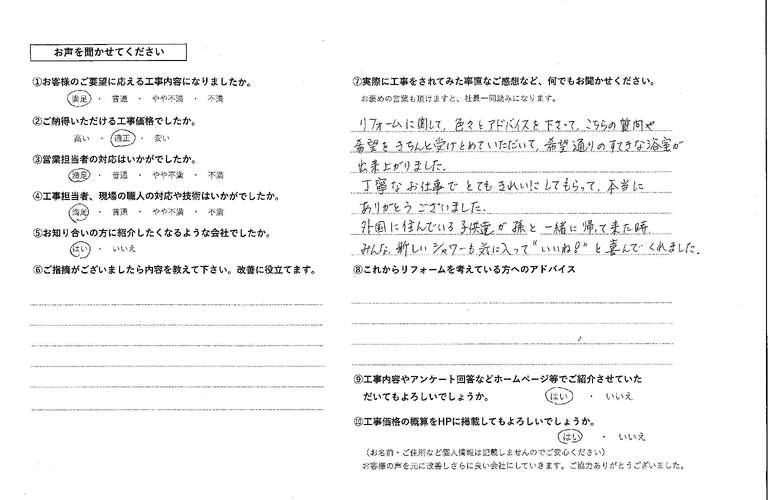 お声を聞かせてください
①お客様のご要望に応える工事内容になりましたか。
満足 ・ 普通 ・ やや不満 ・ 不満
②ご納得いただける工事価格でしたか。
高い ・ 適正 ・ 安い
③営業担当者の対応はいかがでしたか。
満足 ・ 普通 ・ やや不満 ・ 不満
④工事担当者、現場の職人の対応や技術はいかがでしたか。
満足 ・ 普通 ・ やや不満 ・ 不満
⑤お知り合いの方に紹介したくなるような会社でしたか。
はい ・ いいえ
⑥ご指摘がございましたら内容を教えて下さい。改善に役立てます。
⑦実際に工事をされてみた率直なご感想など、何でもお聞かせください。
お褒めの言葉も頂けますと、社員一同読みになります。
リフォームに関して、色々とアドバイスを下さって、こちらの質問や
希望をきちんと受けとめていただいて、希望通りのすてきな浴室が
出来上がりました。
丁寧なお仕事でとてもきれいにしてもらって、本当に
ありがとうございました。
外国に住んでいる子供達が孫と一緒に帰って来た時
みんな、新しいシャワーも気に入って“いいね!”と喜んでくれました。
⑧これからリフォームを考えている方へのアドバイス
⑨工事内容やアンケート回答などホームページ等でご紹介させていた
だいてもよろしいでしょうか。 はい ・ いいえ
⑩工事価格の概算をHPに掲載してもよろしいでしょうか。
はい ・ いいえ
（お名前・ご住所など個人情報は記載しませんのでご安心ください）
お客様の声を元に改善しさらに良い会社にしていきます。ご協力ありがとうございました。